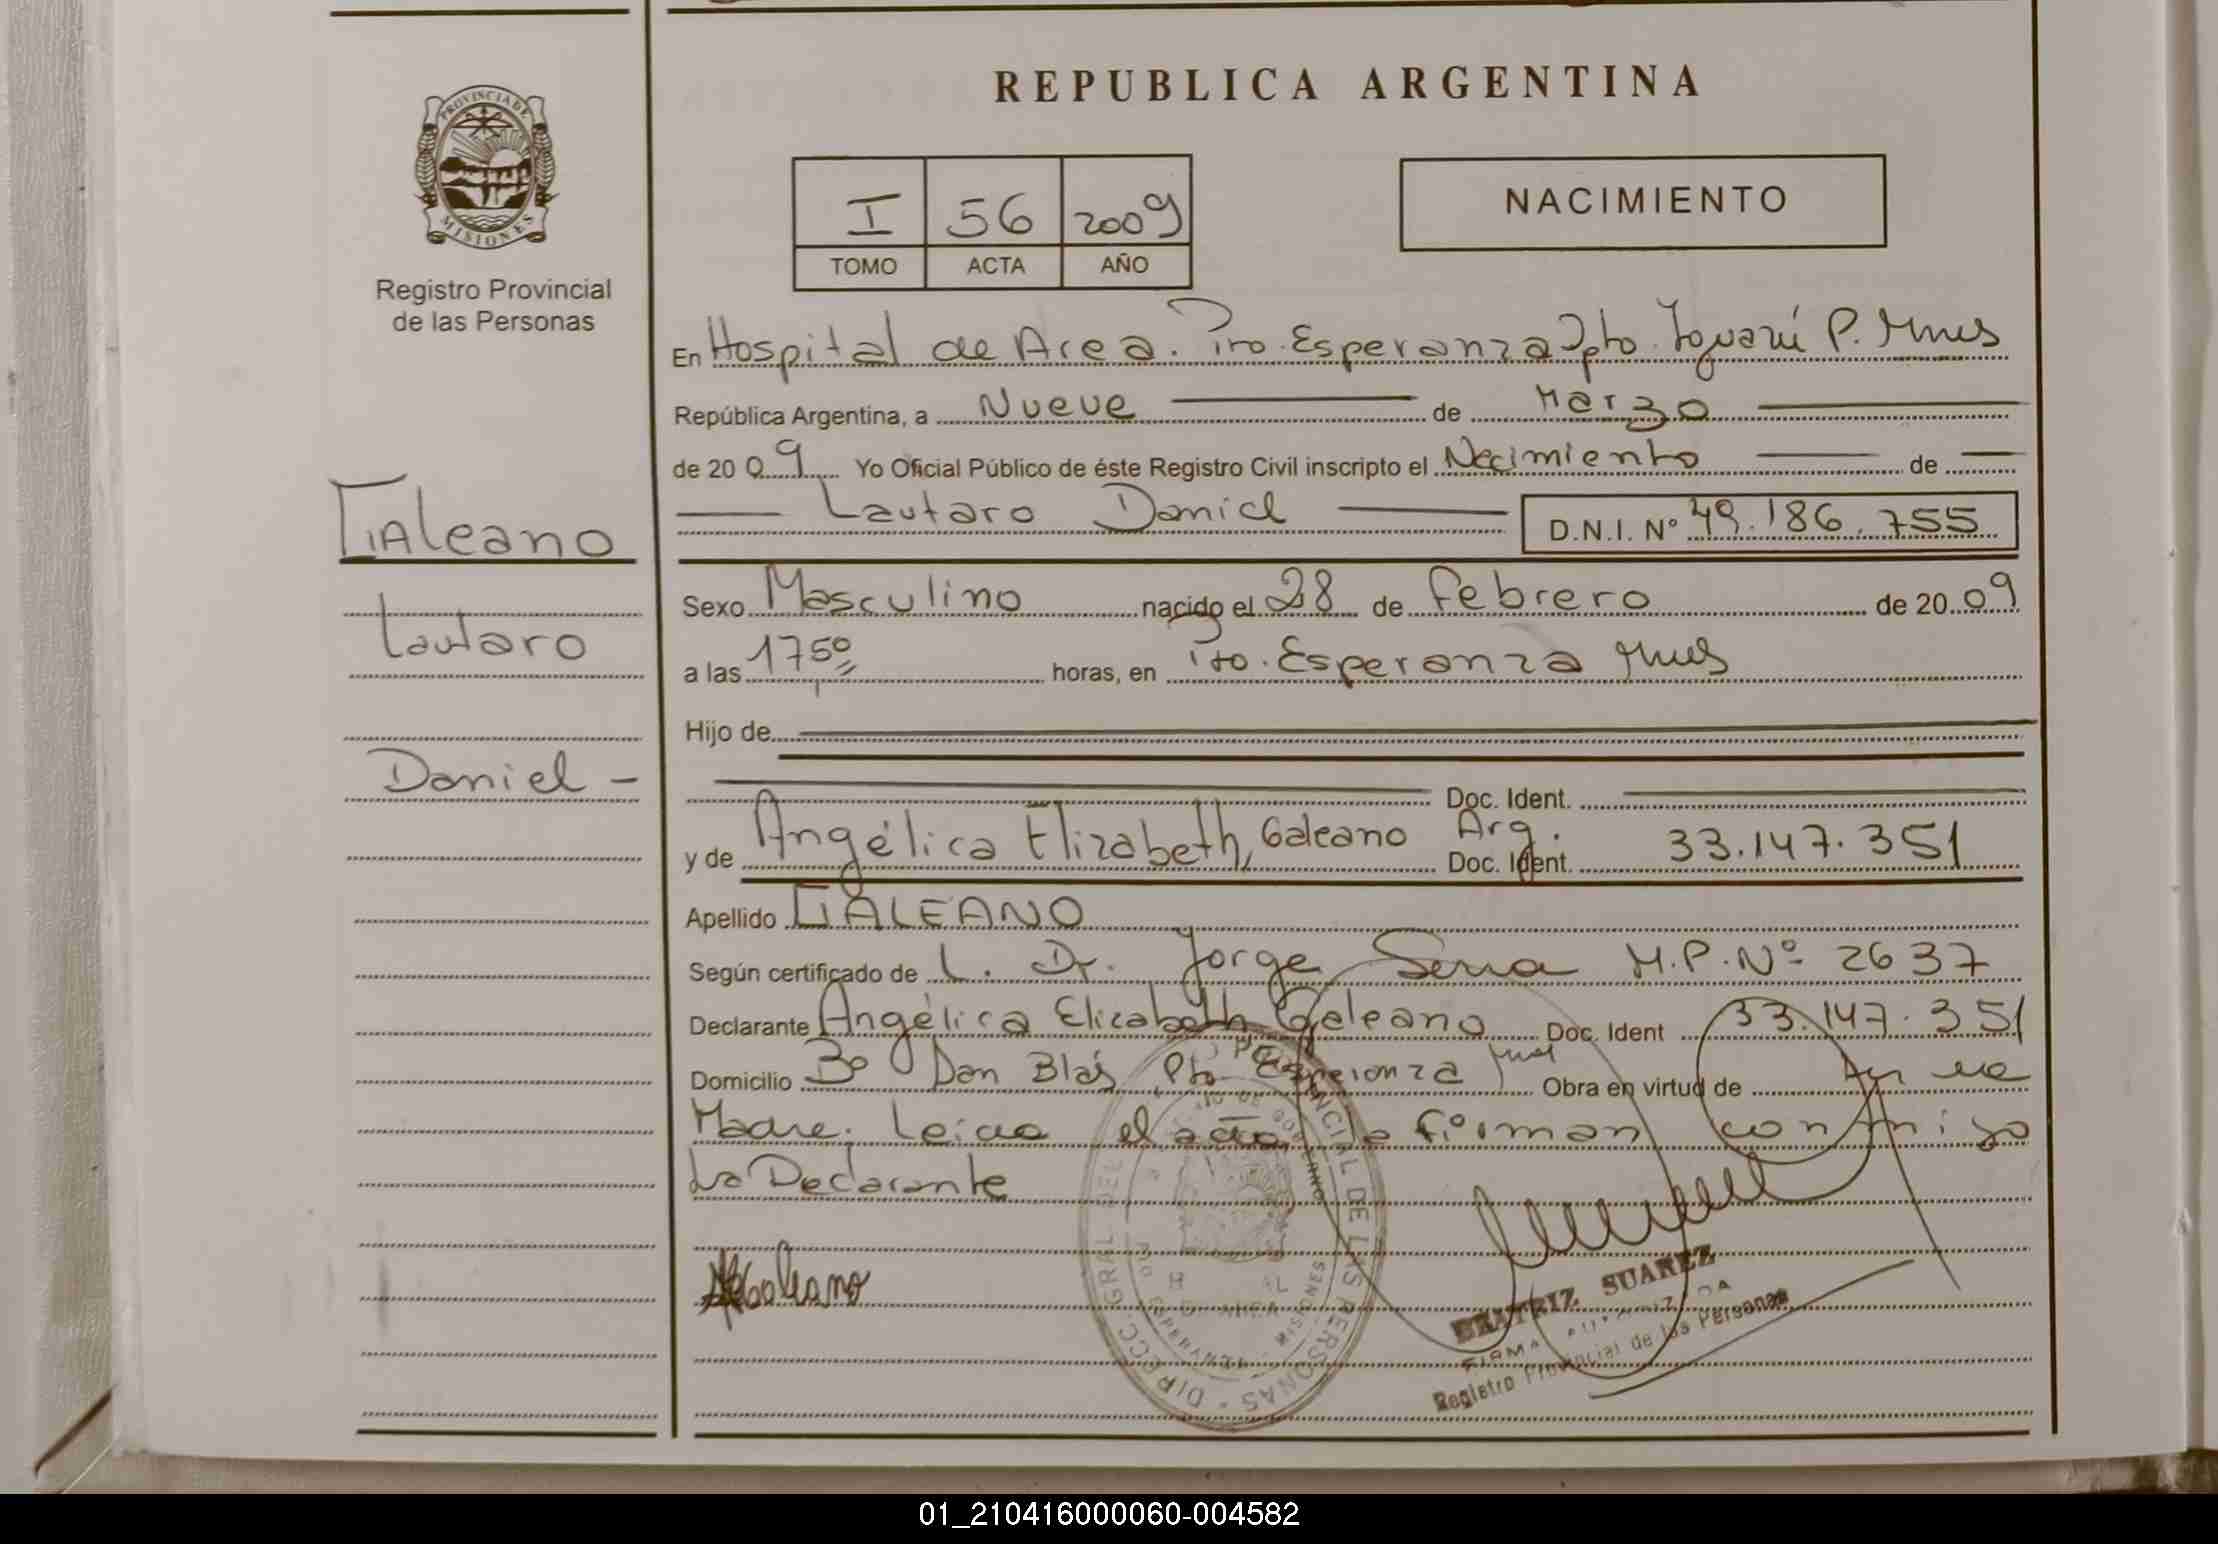 REPUBLICA ARGENTINA
PROVINCIA DE MISIONES
Registro Provincial
de las Personas
I 56 2009
TOMO ACTA AÑO
NACIMIENTO
En Hospital de Area. Pto. Esperanza Dpto. Iguazú P. Mnes
República Argentina, a Nueve de Marzo
de 2009 Yo Oficial Público de éste Registro Civil inscripto el Nacimiento de
Lautaro Daniel D.N.I. Nº 49.186.755
Galeano
Lautaro
Daniel -
Sexo Masculino nacido el 28 de Febrero de 2009
a las 1750 horas, en Pto. Esperanza Mnes
Hijo de
Doc. Ident.
y de Angélica Elizabeth, Galeano Arg. Doc. Ident. 33.147.351
Apellido GALEANO
Según certificado de L. Dr. Jorge M.P.Nº 2637
Declarante Angélica Elizabeth Galeano Doc. Ident 33.147.351
Domicilio Bº Don Blás Pto Esperanza Mnes Obra en virtud de
Madre. Leida el acta la firman conmigo
La Declarante
Galeano
DIRECC. GRAL. DEL REG. PROVINCIAL DE LAS PERSONAS
ESPERANZA - MISIONES
BEATRIZ SUAREZ
FIRMA AUTORIZADA
Registro Provincial de las Personas
01_210416000060-004582